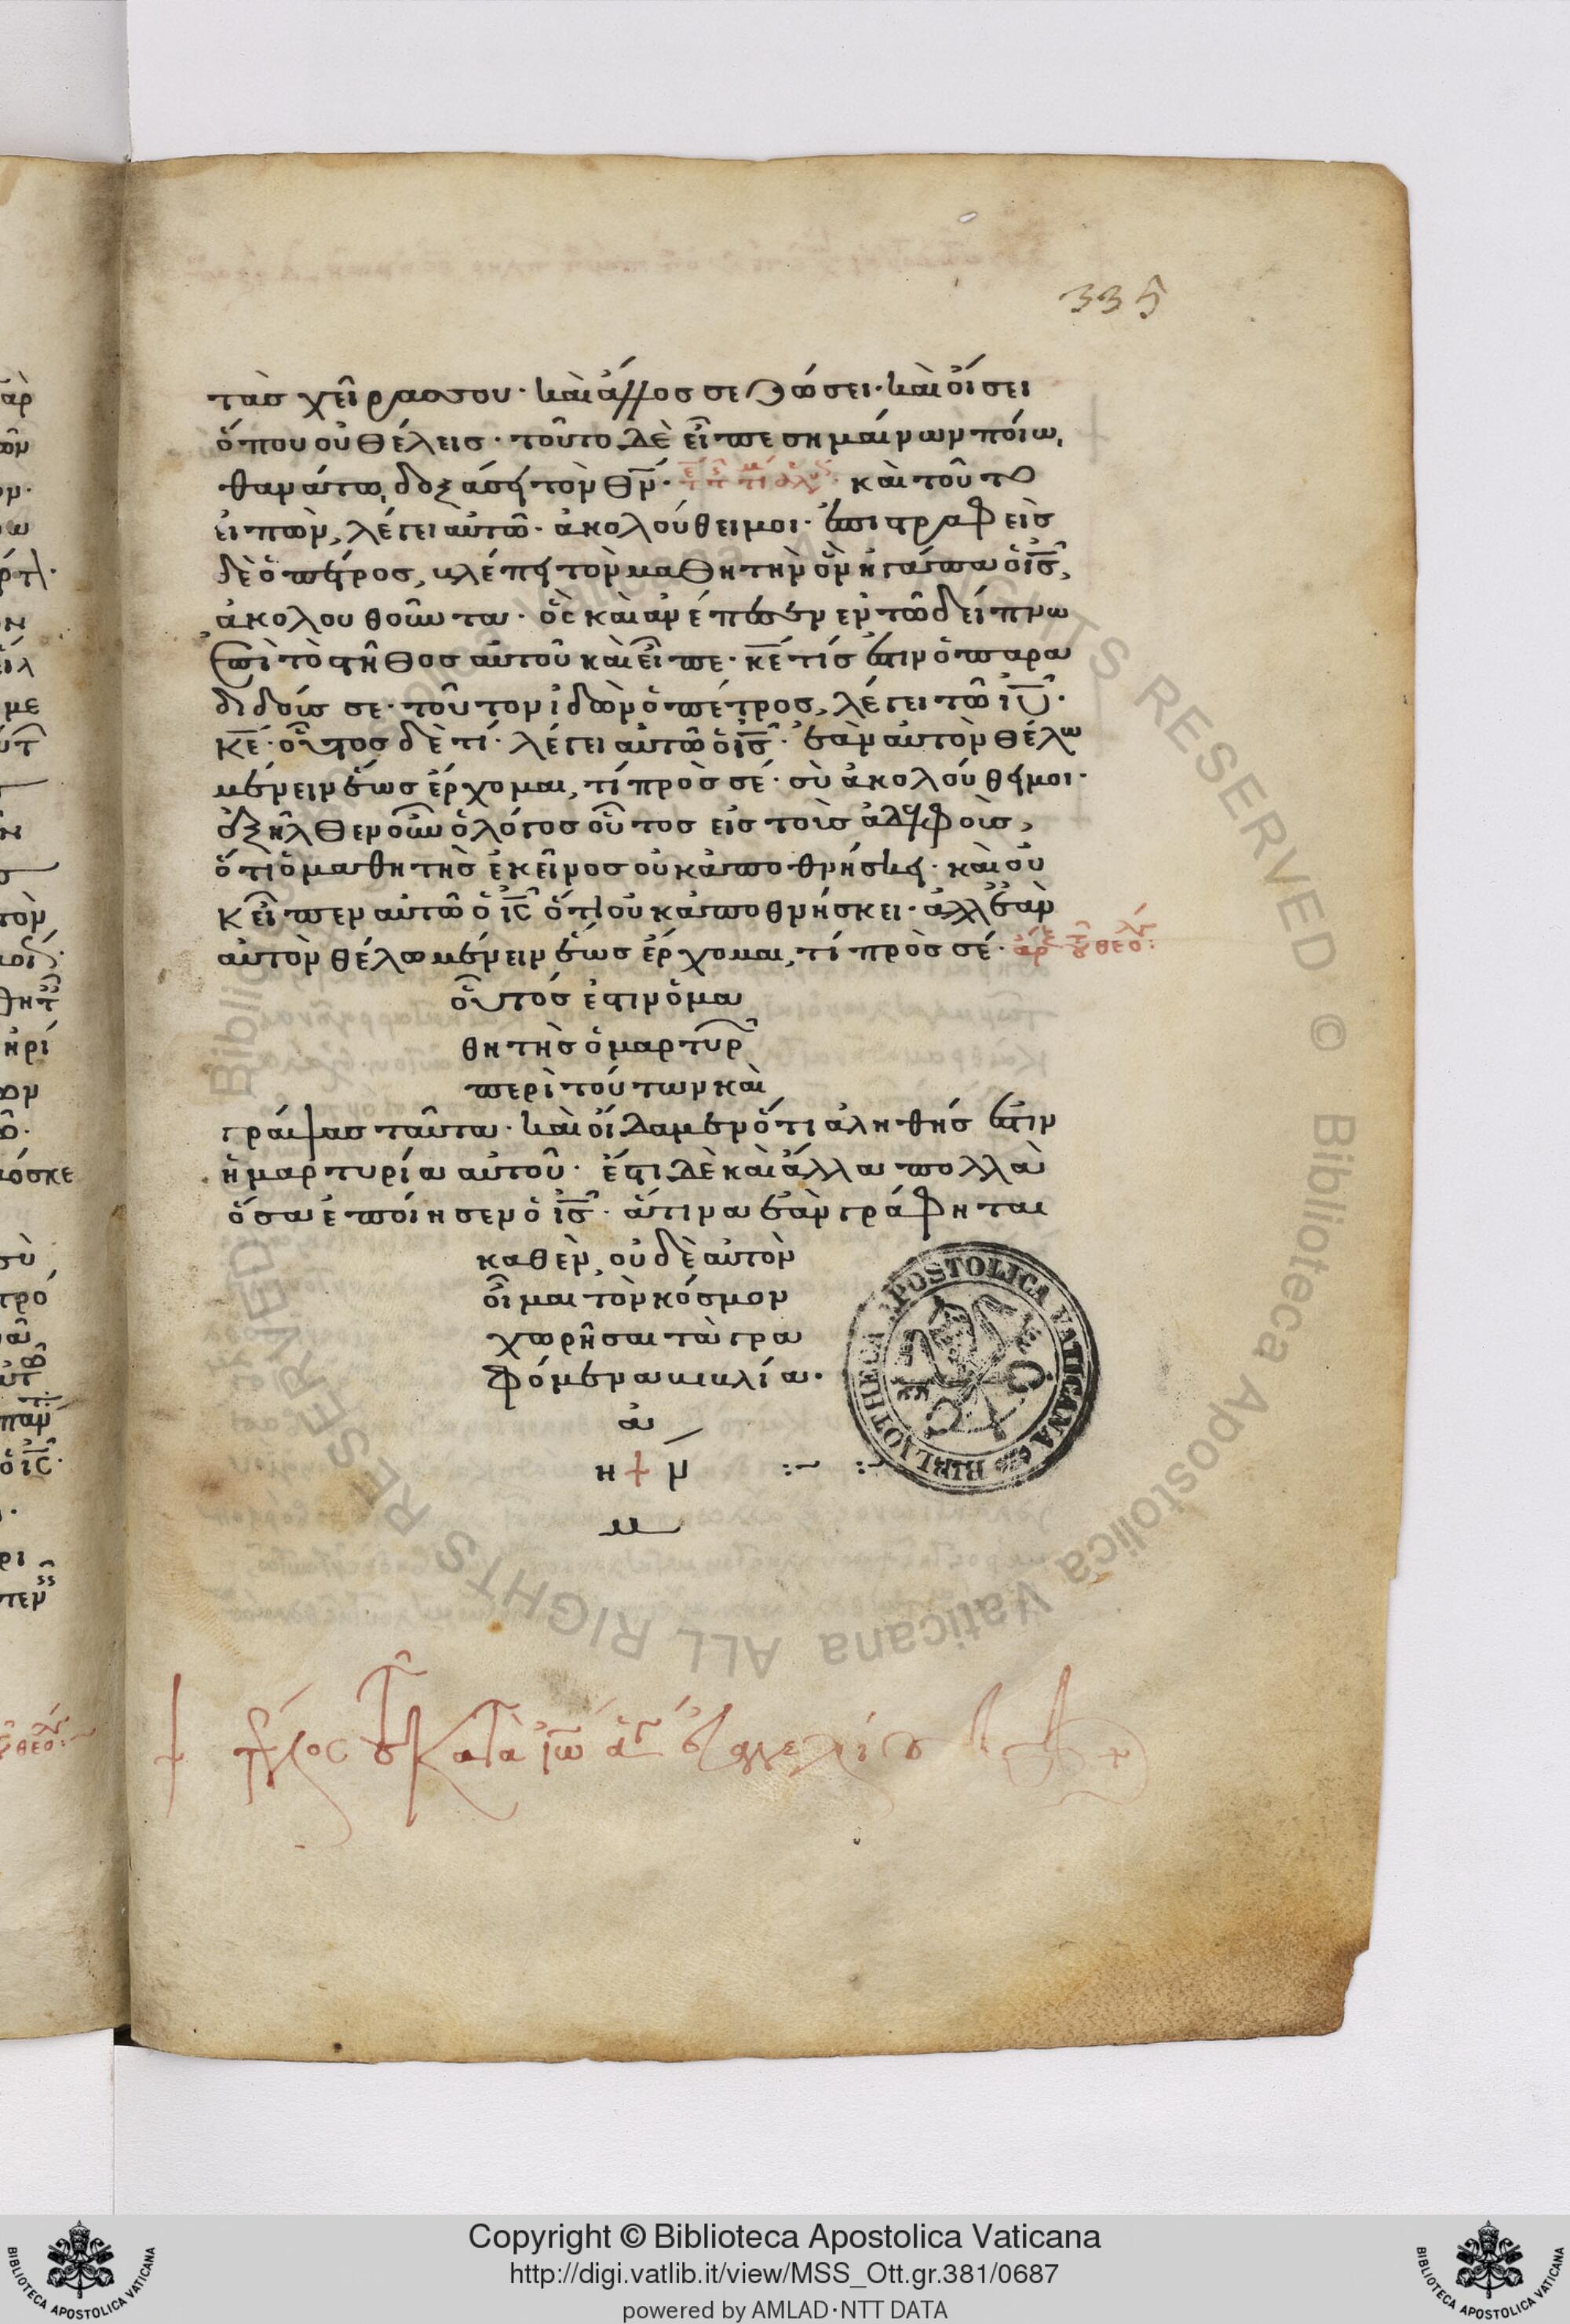 335
τὰς χεῖρας σου· καὶ ἄλλος σε ζώσει· καὶ οἴσει
ὅπου οὐ θέλεις· τοῦτο δὲ εἶπε σημαίνων ποίω,
θανάτω, δοξάσει τὸν θν̅· καὶ τοῦτο
εἰπὼν, λέγει αὐτῶ· ἀκολούθει μοι· ἐπιστραφεὶς
δὲ ὁ πέτρος, βλέπει τὸν μαθητὴν ὃν ἠγάπα ὁ ις̅,
ἀκολουθοῦντα· ὃς καὶ ἀνέπεσεν ἐν τῶ δείπνω
ἐπὶ τὸ στῆθος αὐτοῦ καὶ εἶπε· κε̅ τίς ἐστιν ὁ παρα
διδούς σε· τοῦτον ἰδὼν ὁ πέτρος, λέγει τῶ ιυ̅·
κε̅· οὗτος δὲ τί· λέγει αὐτῶ ὁ ις̅· ἐὰν αὐτὸν θέλω
μένειν ἕως ἔρχομαι, τί πρὸς σέ· σὺ ἀκολούθει μοι·
ἐξῆλθεν οὖν ὁ λόγος οὗτος εἰς τοὺς ἀδελφοὺς,
ὅτι ὁ μαθητὴς ἐκεῖνος οὐκ ἀποθνήσκει· καὶ οὐ
κ εἶπεν αὐτῶ ὁ ις̅ ὅτι οὐκ ἀποθνήσκει· ἀλλ ἐὰν
αὐτὸν θέλω μένειν ἕως ἔρχομαι, τί πρὸς σέ·
οὗτός ἐστιν ὁ μα
θητὴς ὁ μαρτυρ
περὶ τούτων καὶ
γράψας ταῦτα· καὶ οἴδαμεν ὅτι ἀληθής ἐστιν
ἡ μαρτυρία αὐτοῦ· ἔστι δὲ καὶ ἄλλα πολλὰ
ὅσα ἐποίησεν ὁ ις̅· ἅτινα ἐὰν γράφηται
καθὲν, οὐδὲ αὐτὸν
οἶμαι τὸν κόσμον
χωρῆσαι τὰ γρα
φόμενα βιβλία·
ἀ
η + ν
μ
+ τέλος τοῦ κατὰ ἰω ἁγ εὐαγγελίου
BIBLIOTHECA APOSTOLICA VATICANA
Biblioteca Apostolica Vaticana ALL RIGHTS RESERVED © Biblioteca Apostolica Vaticana ALL RIGHTS RESERVED
Copyright © Biblioteca Apostolica Vaticana
http://digi.vatlib.it/view/MSS_Ott.gr.381/0687
powered by AMLAD·NTT DATA
BIBLIOTECA APOSTOLICA VATICANA
BIBLIOTECA APOSTOLICA VATICANA